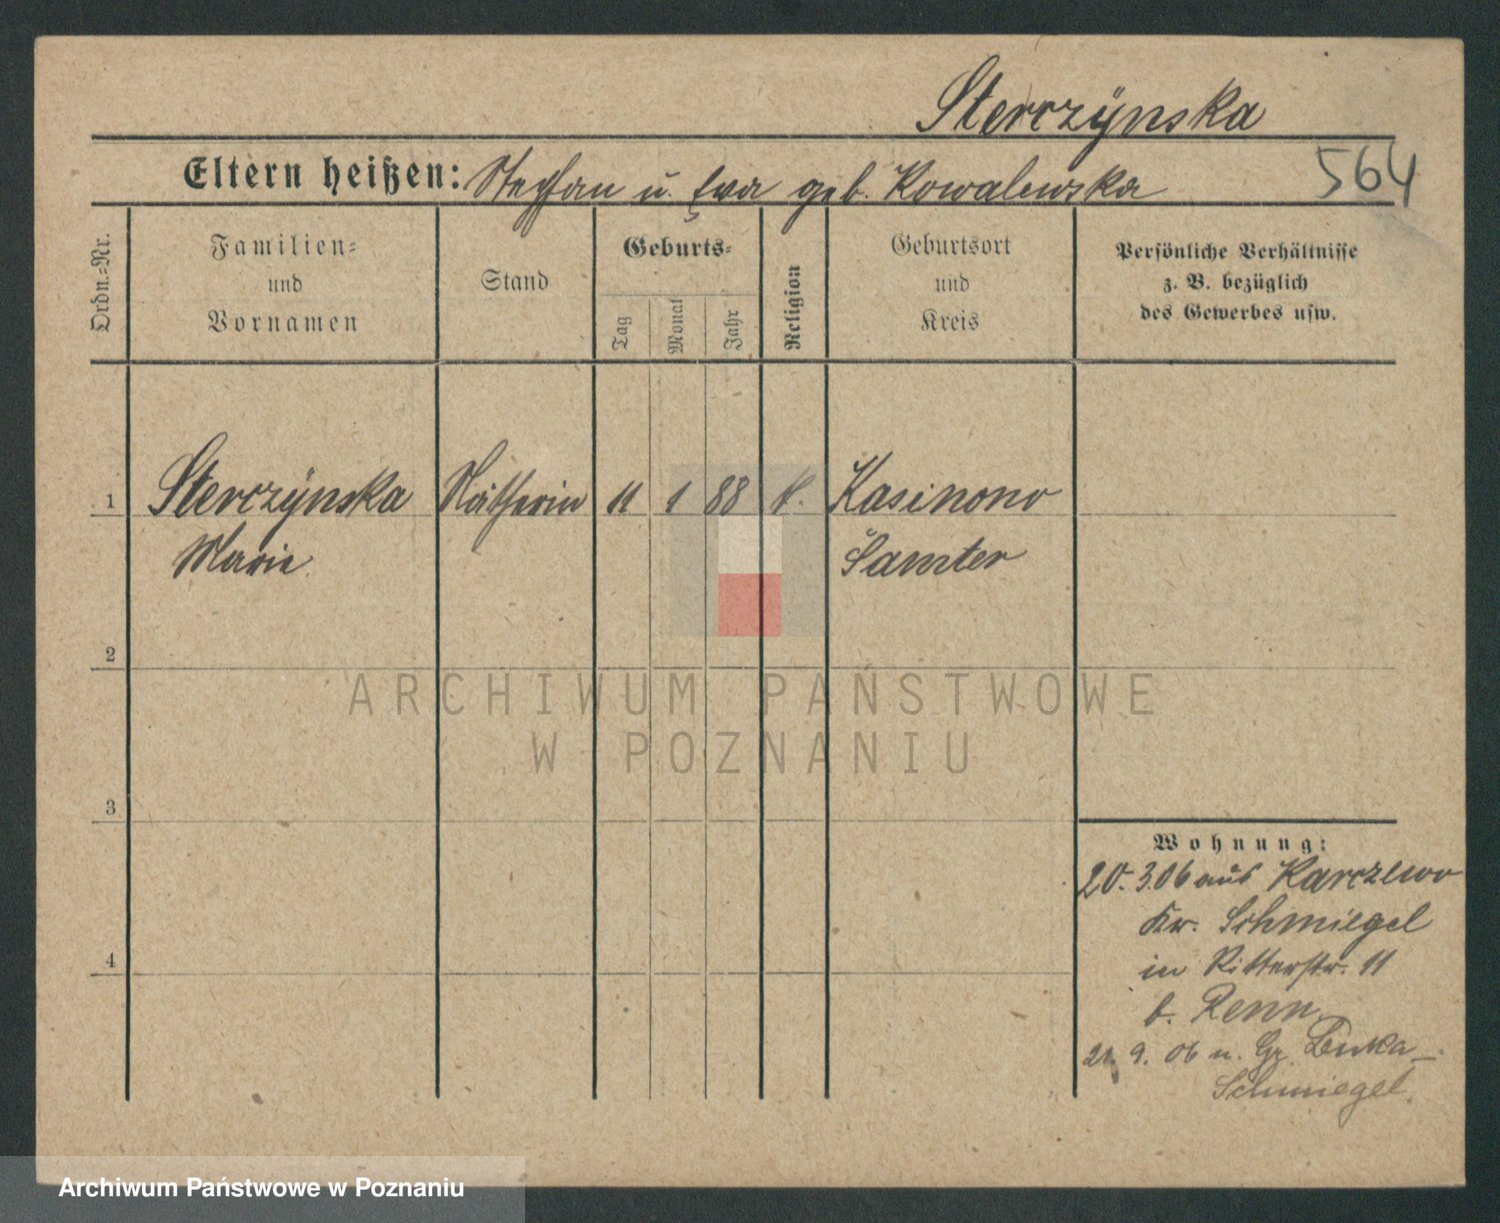 Sterczÿnska
Eltern heißen: Stephan u. Eva geb. Kowalewska
564
Ordn.-Nr.
Familien-
und
Vornamen
Stand
Geburts-
Tag
Monat
Jahr
Religion
Geburtsort
und
Kreis
Persönliche Verhältnisse
z. B. bezüglich
des Gewerbes usw.
1 Sterczÿnska Nätherin 11 1 88 k. Kasinowo
Marie Samter
2
ARCHIWUM PAŃSTWOWE
W POZNANIU
3
4
Wohnung:
20. 3.06 aus Karczewo
Kr. Schmiegel
in Ritterstr. 11
b. Renn
21. 9. 06 n. Gr.
Schmiegel.
Archiwum Państwowe w Poznaniu